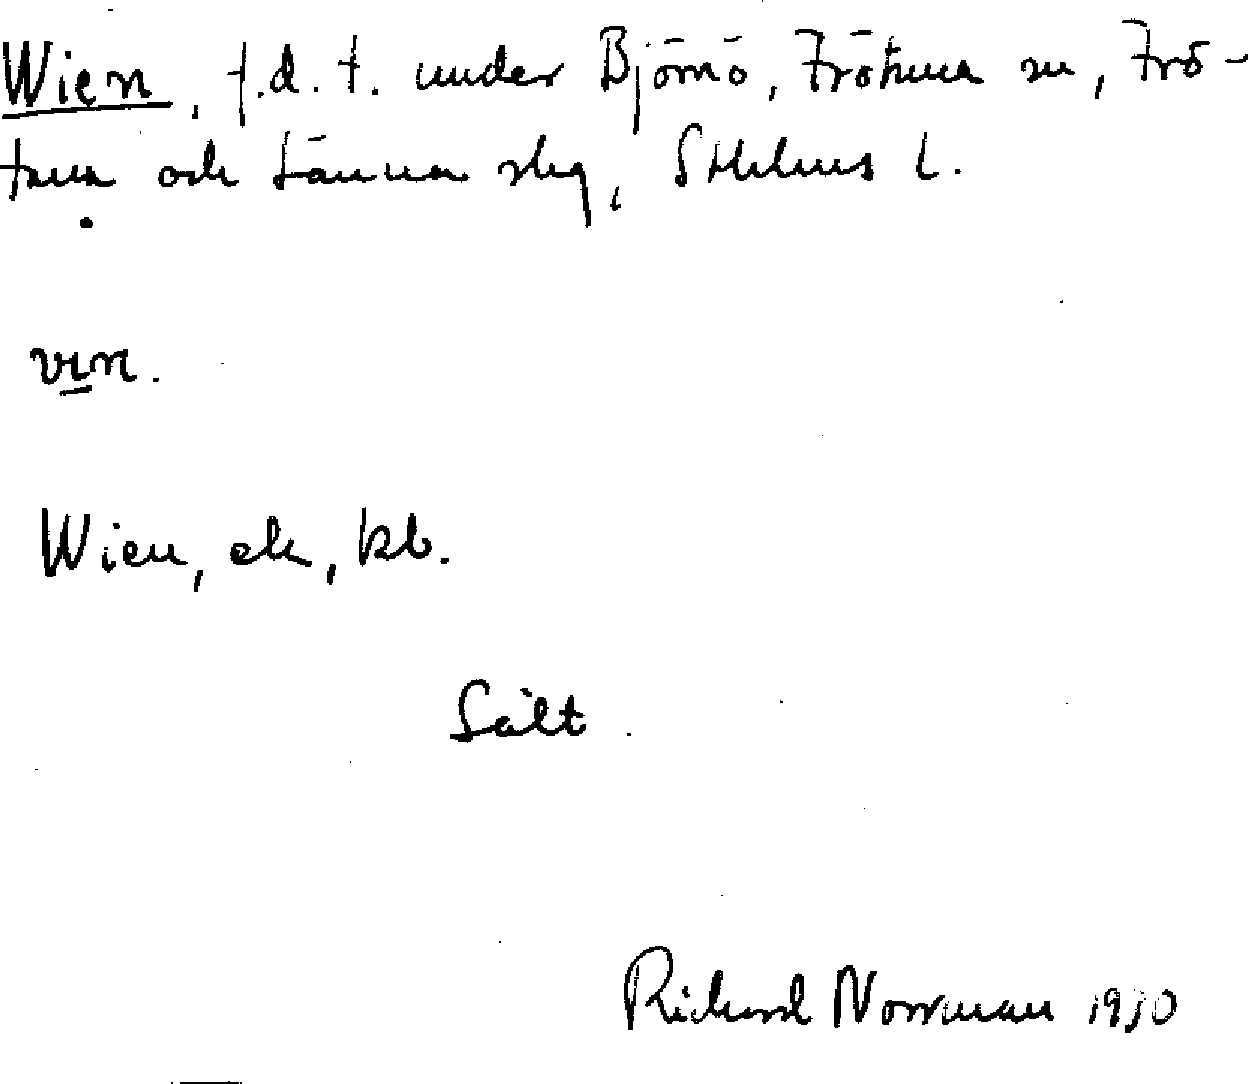 Wien, f.d. t. under Björnö, Frötuna sn, Frö-
tuna och Länna skg, Sthlms l.
vin.
Wien, ek, kb.
Sält
Richard Norrman 1930